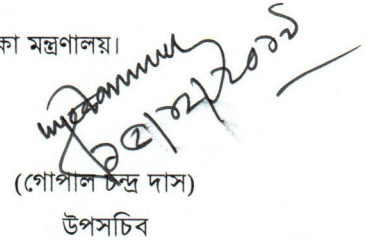 কা মন্ত্রণালয়।
(গোপাল চন্দ্র দাস)
উপসচিব